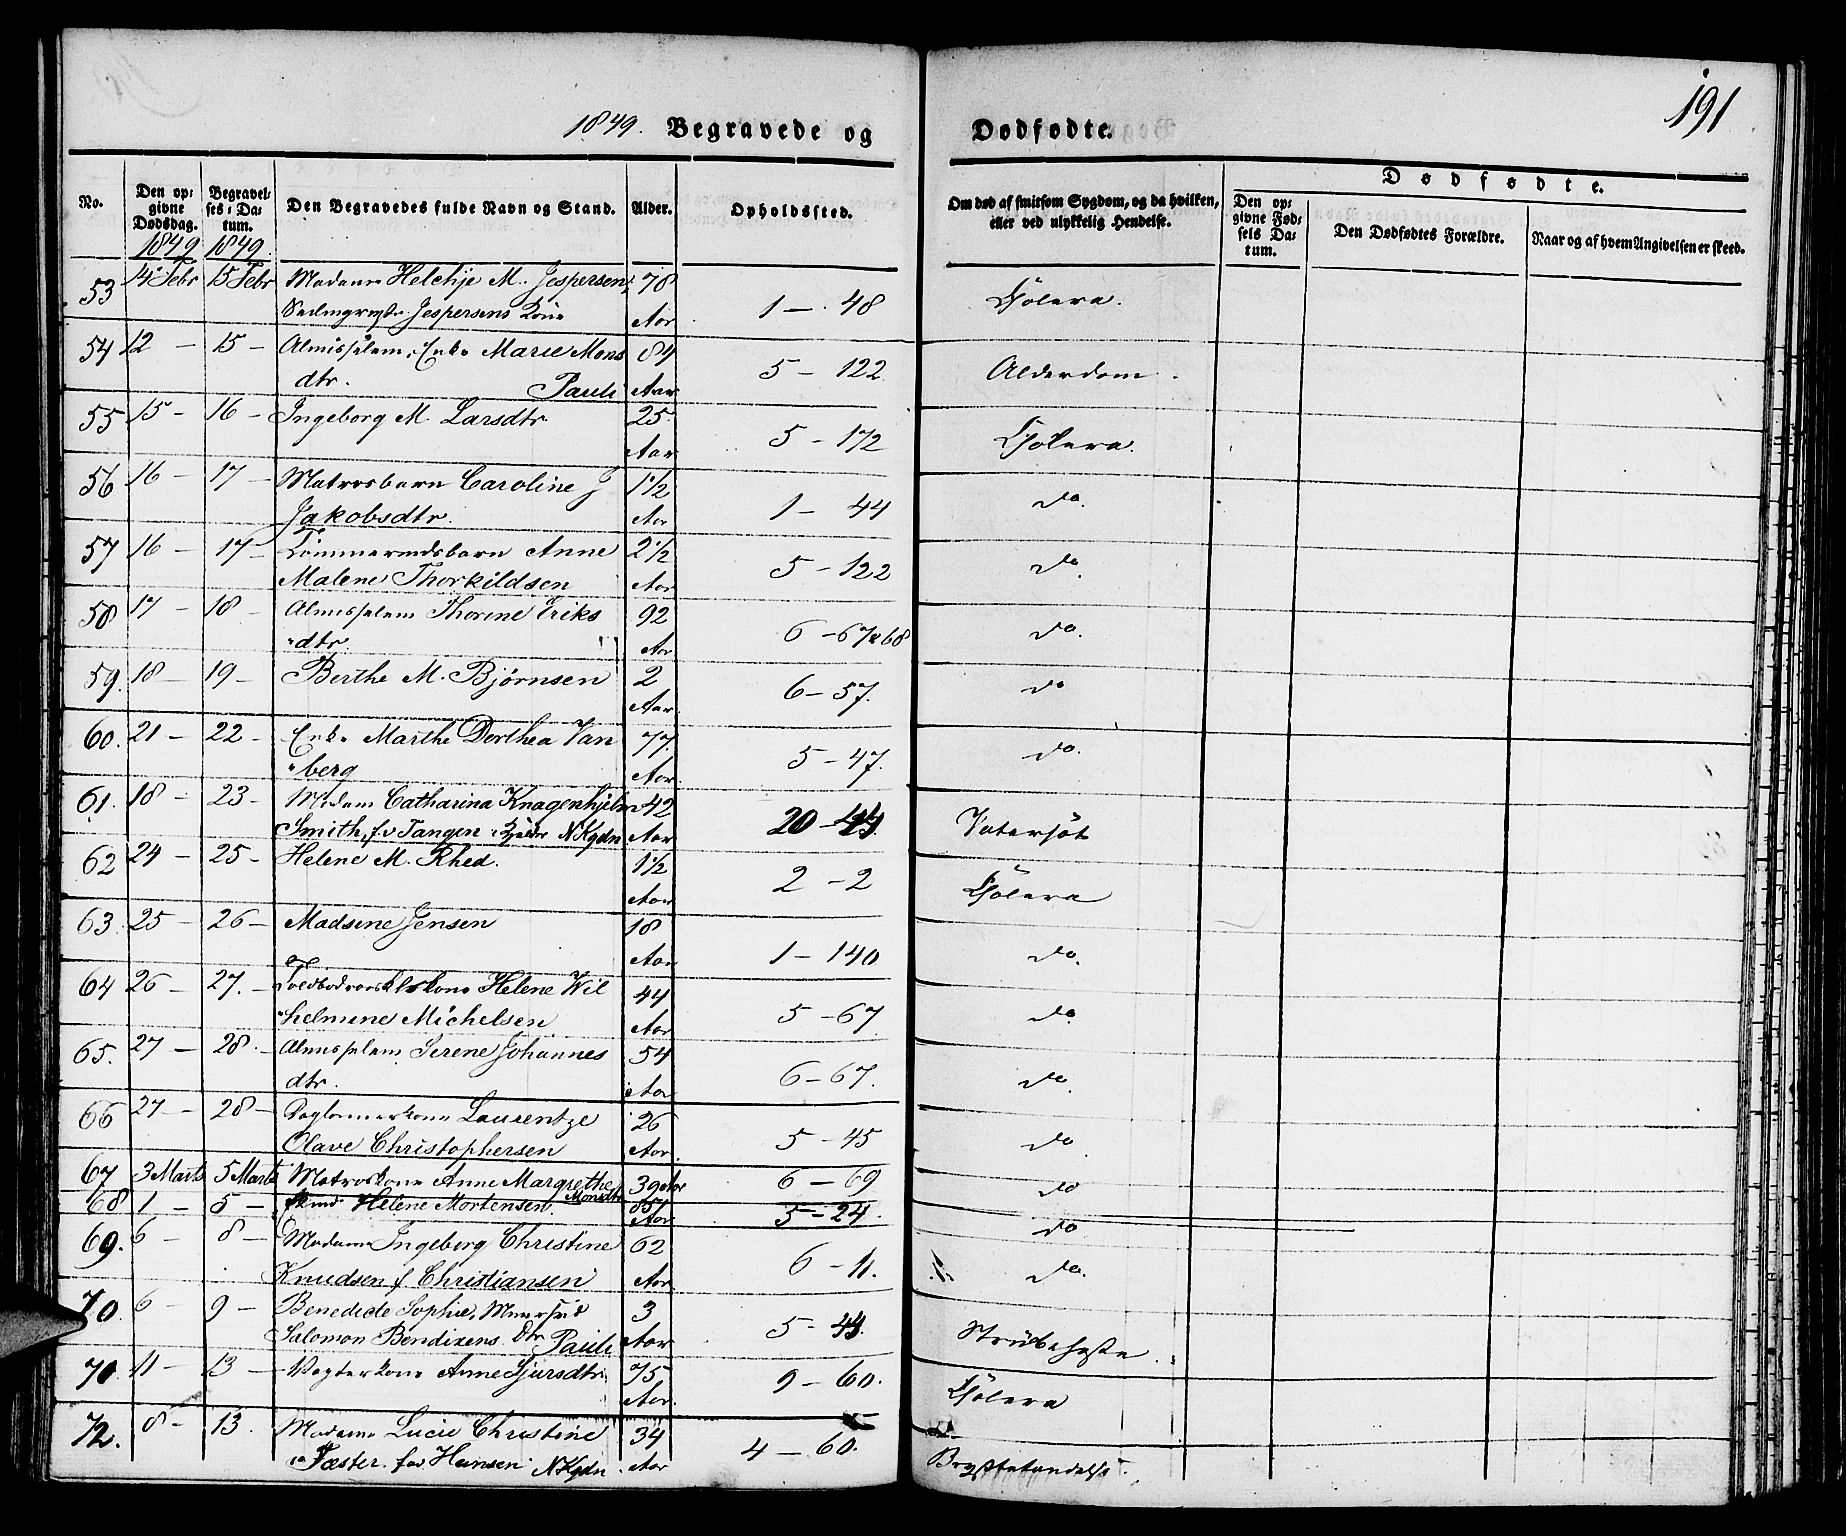 191
1849. Begravede og Dødfødte.
No. | Den opgivne Dødsdag. | Begravelses-Datum. | Den Begravedes fulde Navn og Stand. | Alder. | Opholdssted. | Om død af smitsom Sygdom, og da hvilken, eller ved ulykkelig Hendelse. | Dødfødte. | Den opgivne Fødsels Datum. | Den Dødfødtes Forældre. | Naar og af hvem Angivelsen er skeed.
1849 1849.
53 14 Febr 15 Febr Madame Helchje M. Jespersen, 78
Jespersens Kone Aar 1 – 48 Cholera.
54 12 – 15 – Almisselem, Enke Marie Mons 84
dtr. Pauli Aar 5 – 122 Alderdom.
55 15 – 16 – Ingeborg M. Larsdtr 25
Aar 5 – 172 Cholera.
56 16 – 17 – Matrosbarn Caroline J 1½
Jakobsdtr. Aar 1 – 44 do
57 16 – 17 – Tømmermdsbarn Anne 2½
Malene Thorkildsen Aar 5 – 122 do.
58 17 – 18 – Almisselem Thorine Eriks 92
dtr. Aar 6 – 67 & 68 do.
59. 18 – 19 – Berthe M. Bjørnsen 2
Aar 6 – 57. do
60. 21 – 22 – Enke Marthe Dorthea Van 77.
berg Aar. 5 – 47. do.
61. 18 – 23 – Madam Catharina Knagenhjelm 42
Smith, f. v Tangen N Kgdn Aar 20 – Vatersot
62 24 – 25 – Helene M. Rhed. 1½
Aar 2 – 2 Cholera
63. 25 – 26 – Madsine Jensen 18
Aar 1 – 140 do.
64 26 – 27. – Helene Wil 44
helmine Michelsen Aar 5 – 67 do.
65. 27 – 28. – Almisselem Serene Johannes 54
dtr. Aar 6 – 67. do.
66 27 – 28 – Daglønnerkone Laurentze 26
Olave Christophersen Aar. 5 – 45 do
67 3 Marts 5 Marts Matroskone Anne Margrethe 39 Aar 6 – 69 do
Monsdtr
68 1 – 5 – Helene Mortensen. 85
Aar 5 – 24. do
69. 6 – 8 – Madame Ingeborg Christine 62
Knudsen f. Christiansen Aar 6 – 11. do.
70. 6 – 9 – Benedicte Sophie, 3
Salomon Bendixens Dtr Pauli Aar 5 – 44. Strubehoste.
70. 11 – 13 – Vægterkone Anne Sjursdtr. 75
Aar. 9 – 60. Cholera
72. 8 – 13. Madame Lucie Christine 34
Fæster. fød Hansen N Kgdn. Aar 4 – 60. Brystbetændelse.